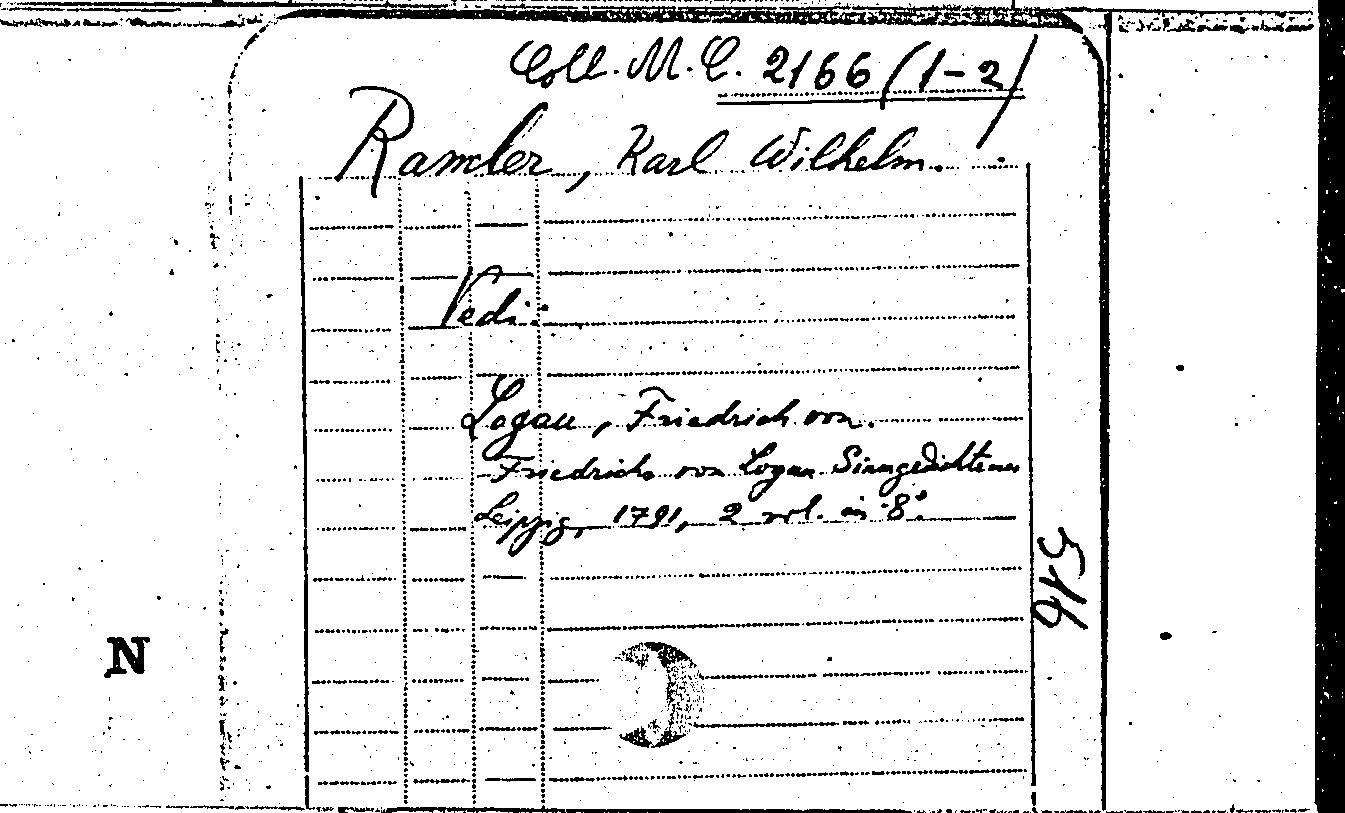 Coll. M. C. 2166 (1-2)
Ramler, Karl Wilhelm.
Vedi:
Logau, Friedrich von.
Friedrichs von Logau Sinngedichte
Leipzig, 1791, 2 vol. in 8°.
516
N